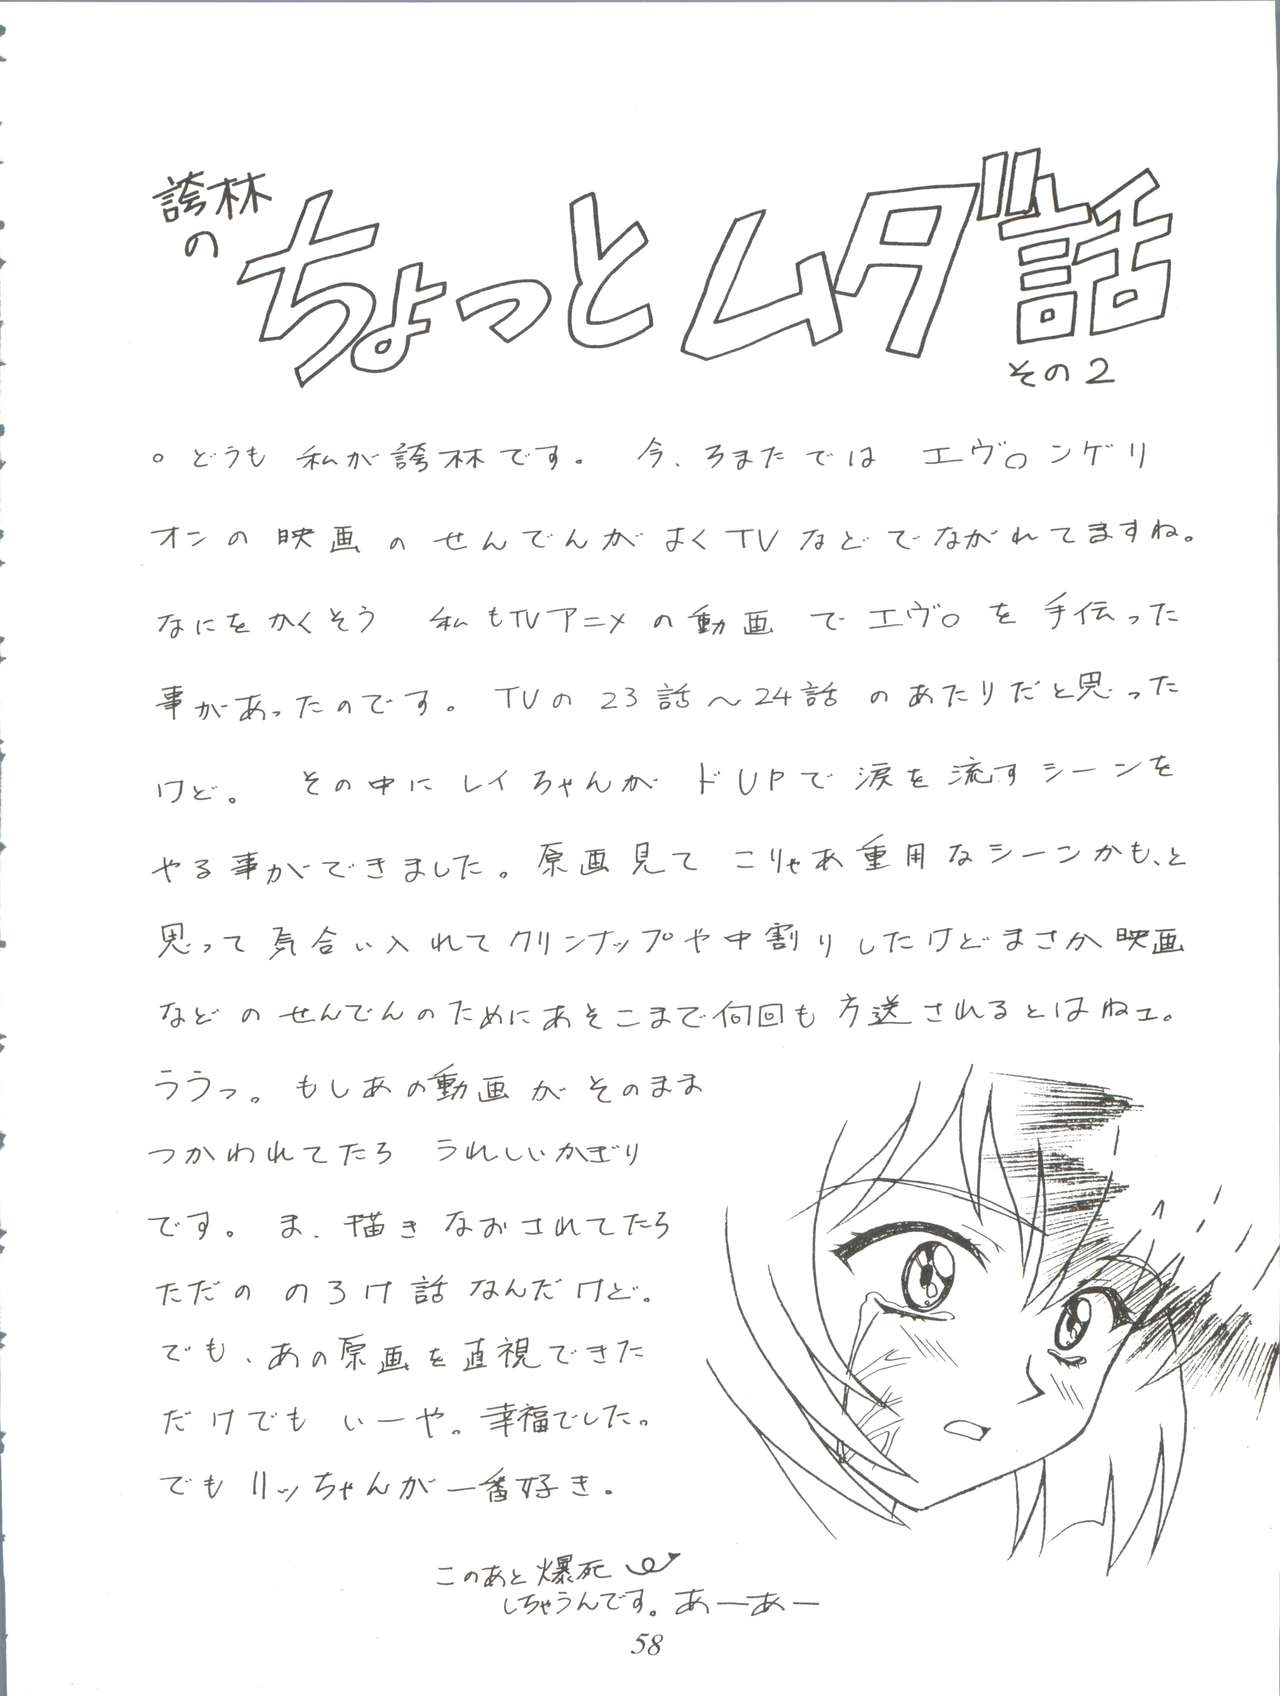 誇林
の
ちょっとムダ話
その2
○どうも 私が誇林です。 今、ろまたでは エヴ○ンゲリ
オンの映画のせんでんがよくTVなどでながれてますね。
なにをかくそう 私もTVアニメの動画でエヴ○を手伝った
事があったのです。TVの23話～24話のあたりだと思った
けど。 その中にレイちゃんがドUPで涙を流すシーンを
やる事ができました。原画見てこりゃあ重用なシーンかも、と
思って気合い入れてクリンナップや中割りしたけどまさか映画
などのせんでんのためにあそこまで何回も方送されるとはねェ。
ううっ。もしあの動画がそのまま
つかわれてたら うれしいかぎり
です。ま、描きなおされてたら
ただの のろけ話なんだけど。
でも、あの原画を直視できた
だけでも いーや。幸福でした。
でもリッちゃんが一番好き。
このあと爆死
しちゃうんです。あーあー
58